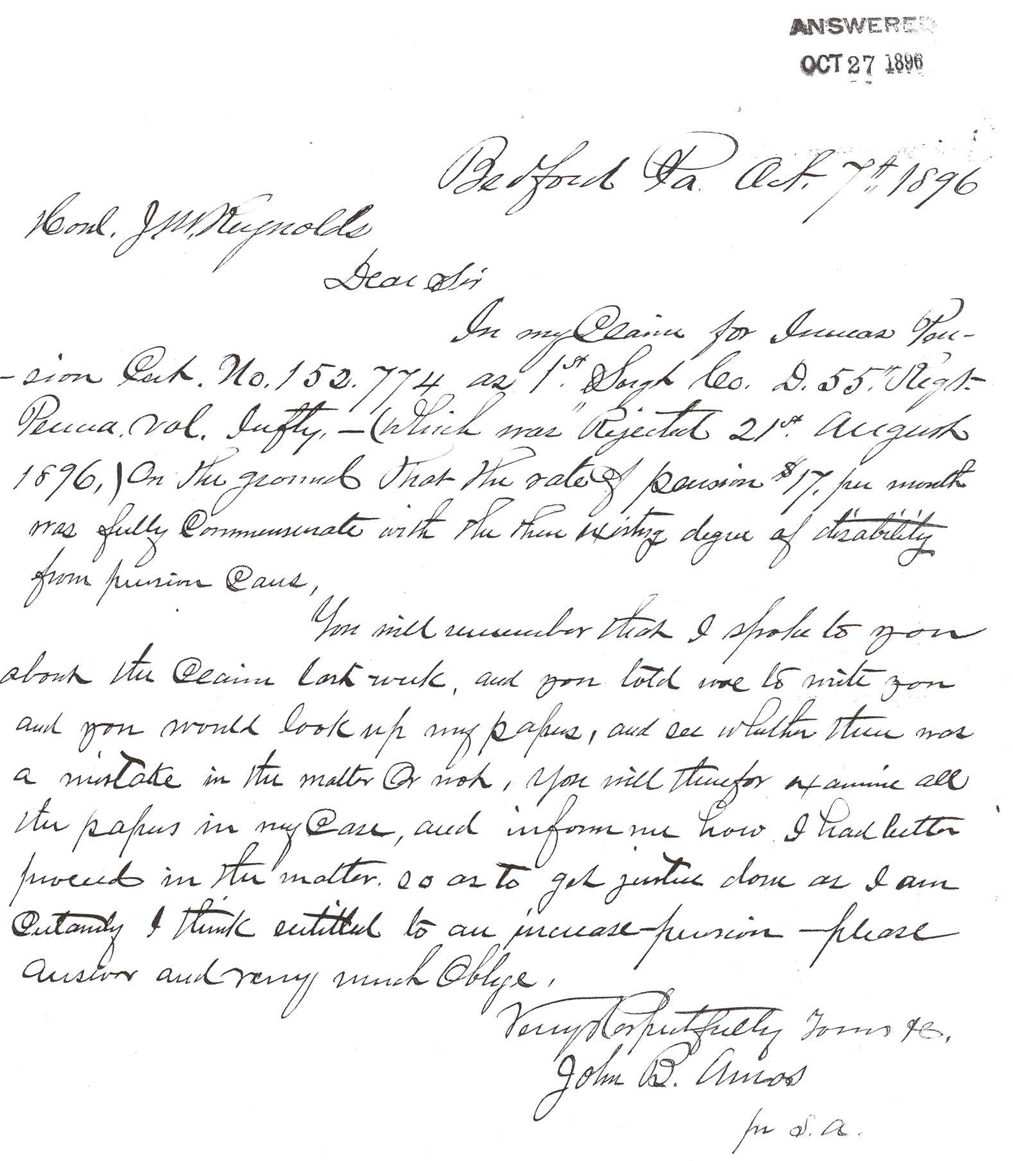 ANSWERED
OCT 27 1896
Bedford Pa. Oct. 7th, 1896
Honl. J W. Reynolds
Dear Sir
In my Claim for Increas Pen-
-sion Cert. No. 152.774 as 1st Sergt Co. D. 55th Regt-
Penna. Vol. Infty, - (Which was Rejected 21st August
1896,) On the ground that the rate of pension $17, per month
was fully Commensurate with the then existing degree of disability
from pension Caus,
You will remember that I spoke to you
about the Claim last week, and you told me to write you
and you would look up my papers, and see whether there was
a mistake in the matter Or not, You will therefor examine all
the papers in my Case, and inform me how I had better
proceed in the matter. so as to get justice done as I am
Certainly I think entitled to an increase-pension - please
answer and very much Oblige,
Very Respectfully Yours &c,
John B. Amos
per S. A.